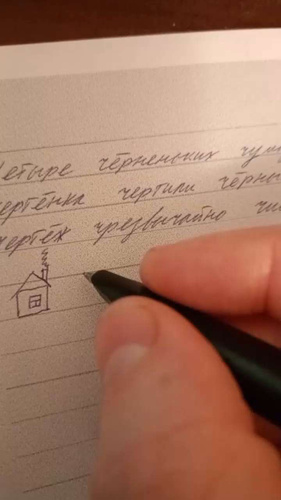 Четыре чёрненьких чум
чертёнка чертили чёрны
чертёж чрезвычайно чи